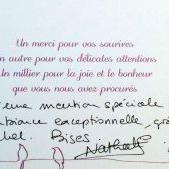 Un merci pour vos sourires
n autre pour vos délicates attentions
Un millier pour la joie et le bonheur
que vous nous avez procurés
une mention spéciale
biance exceptionnelle, grâ
Bises.
Nathalie